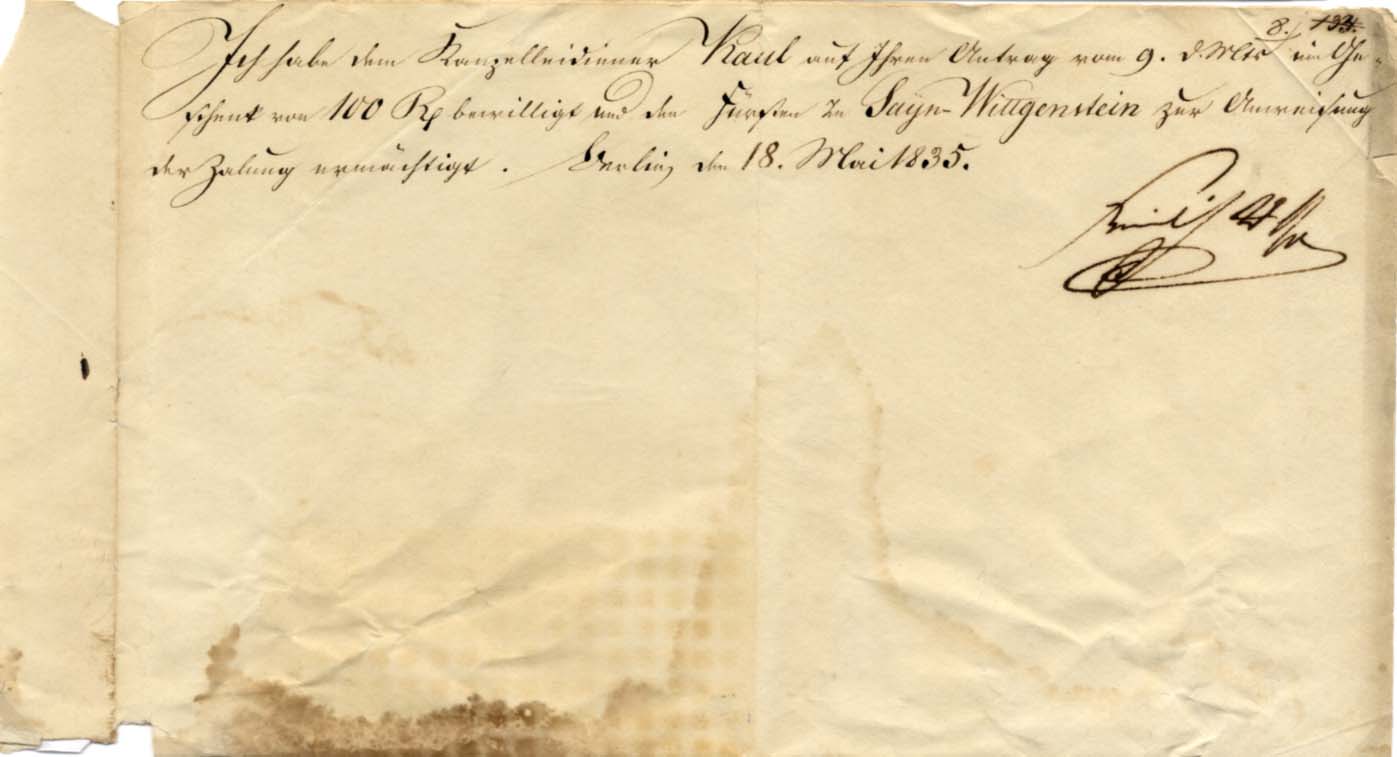 8. 133.
Ich habe dem Kanzelleidiener Kaul auf Ihren Antrag vom 9. d. Mts ein Ge-
schenk von 100 Rp bewilligt und den Fürsten zu Sayn-Wittgenstein zur Anweisung
der Zalung ermächtigt. Berlin, den 18. Mai 1835.